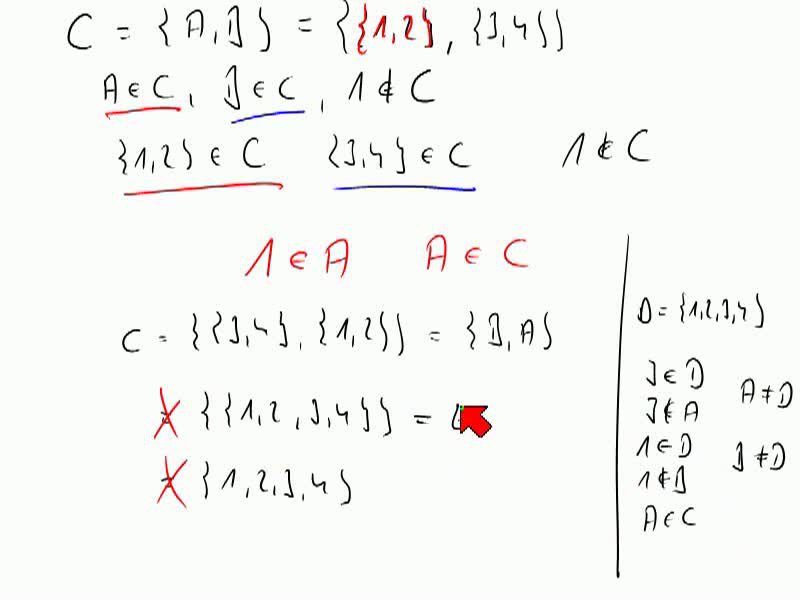 C = {A, B} = {{1,2}, {3,4}}
A ∈ C, B ∈ C, 1 ∉ C
{1,2} ∈ C {3,4} ∈ C 1 ∉ C
1 ∈ A A ∈ C
C = {{3,4}, {1,2}} = {B, A}
≠ {{1,2,3,4}} =
≠ {1,2,3,4}
D = {1,2,3,4}
3 ∈ D
3 ∉ A
A ≠ D
1 ∈ D
1 ∉ B
B ≠ D
A ∈ C